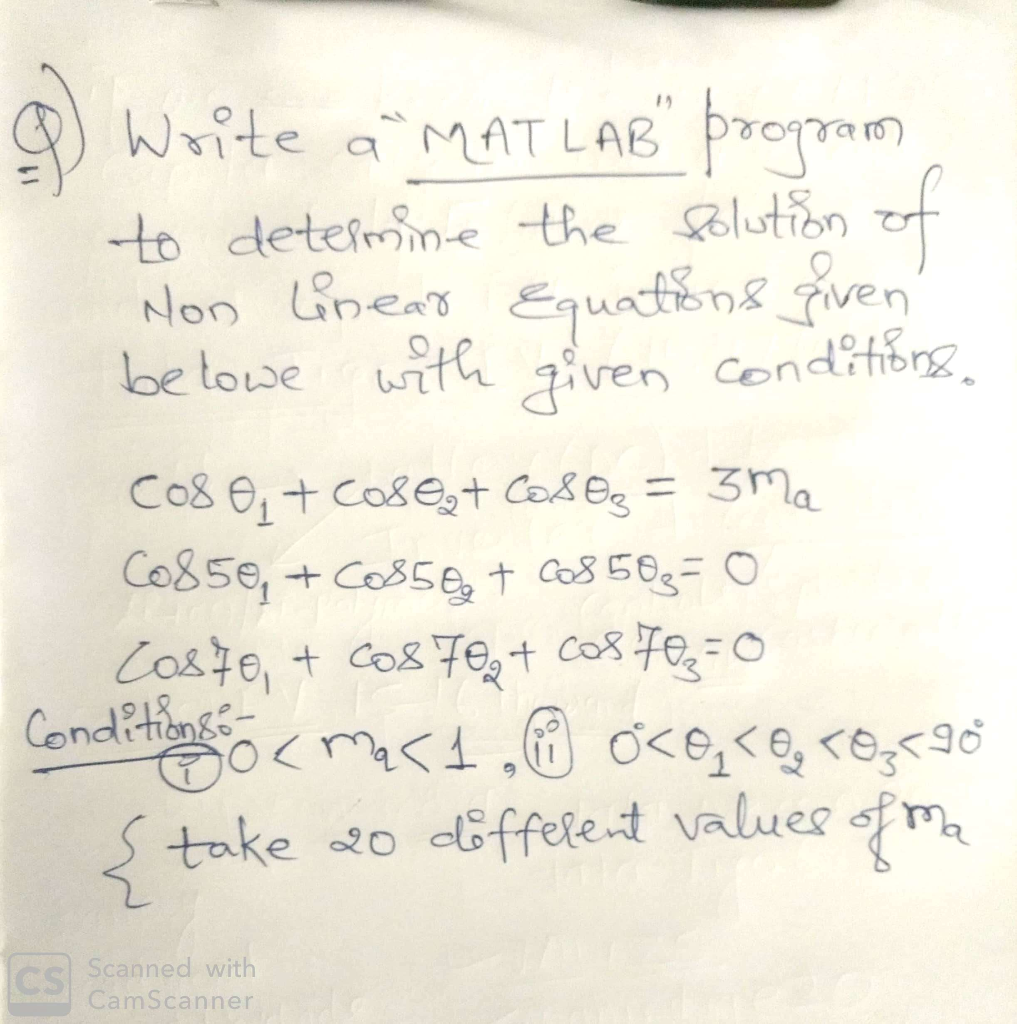 Q) Write a "MATLAB" program
to determine the solution of
Non linear Equations given
belowe with given conditions.
Cos θ₁ + cosθ₂ + cosθ₃ = 3mₐ
Cos5θ₁ + Cos5θ₂ + cos5θ₃ = 0
Cos7θ₁ + cos7θ₂ + cos7θ₃ = 0
Conditions:-
(i) 0 < mₐ < 1 , (ii) 0° < θ₁ < θ₂ < θ₃ < 90°
{ take 20 different values of mₐ
CS Scanned with
CamScanner